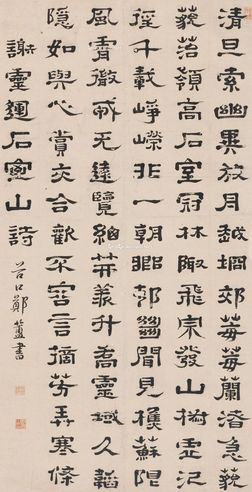 清旦索幽異放舟越坰郊莓莓蘭渚急藐
藐落嶺高石室冠林陬飛泉發山椒虛汎
徑千載崢嶸非一朝鄉邨絕聞見樵蘇限
風霄微戎无遠覽總笄羨升喬靈域久韜
隱如與心賞交合歡不容言摘芳弄寒條
謝靈運石室山詩
谷口鄭簠書